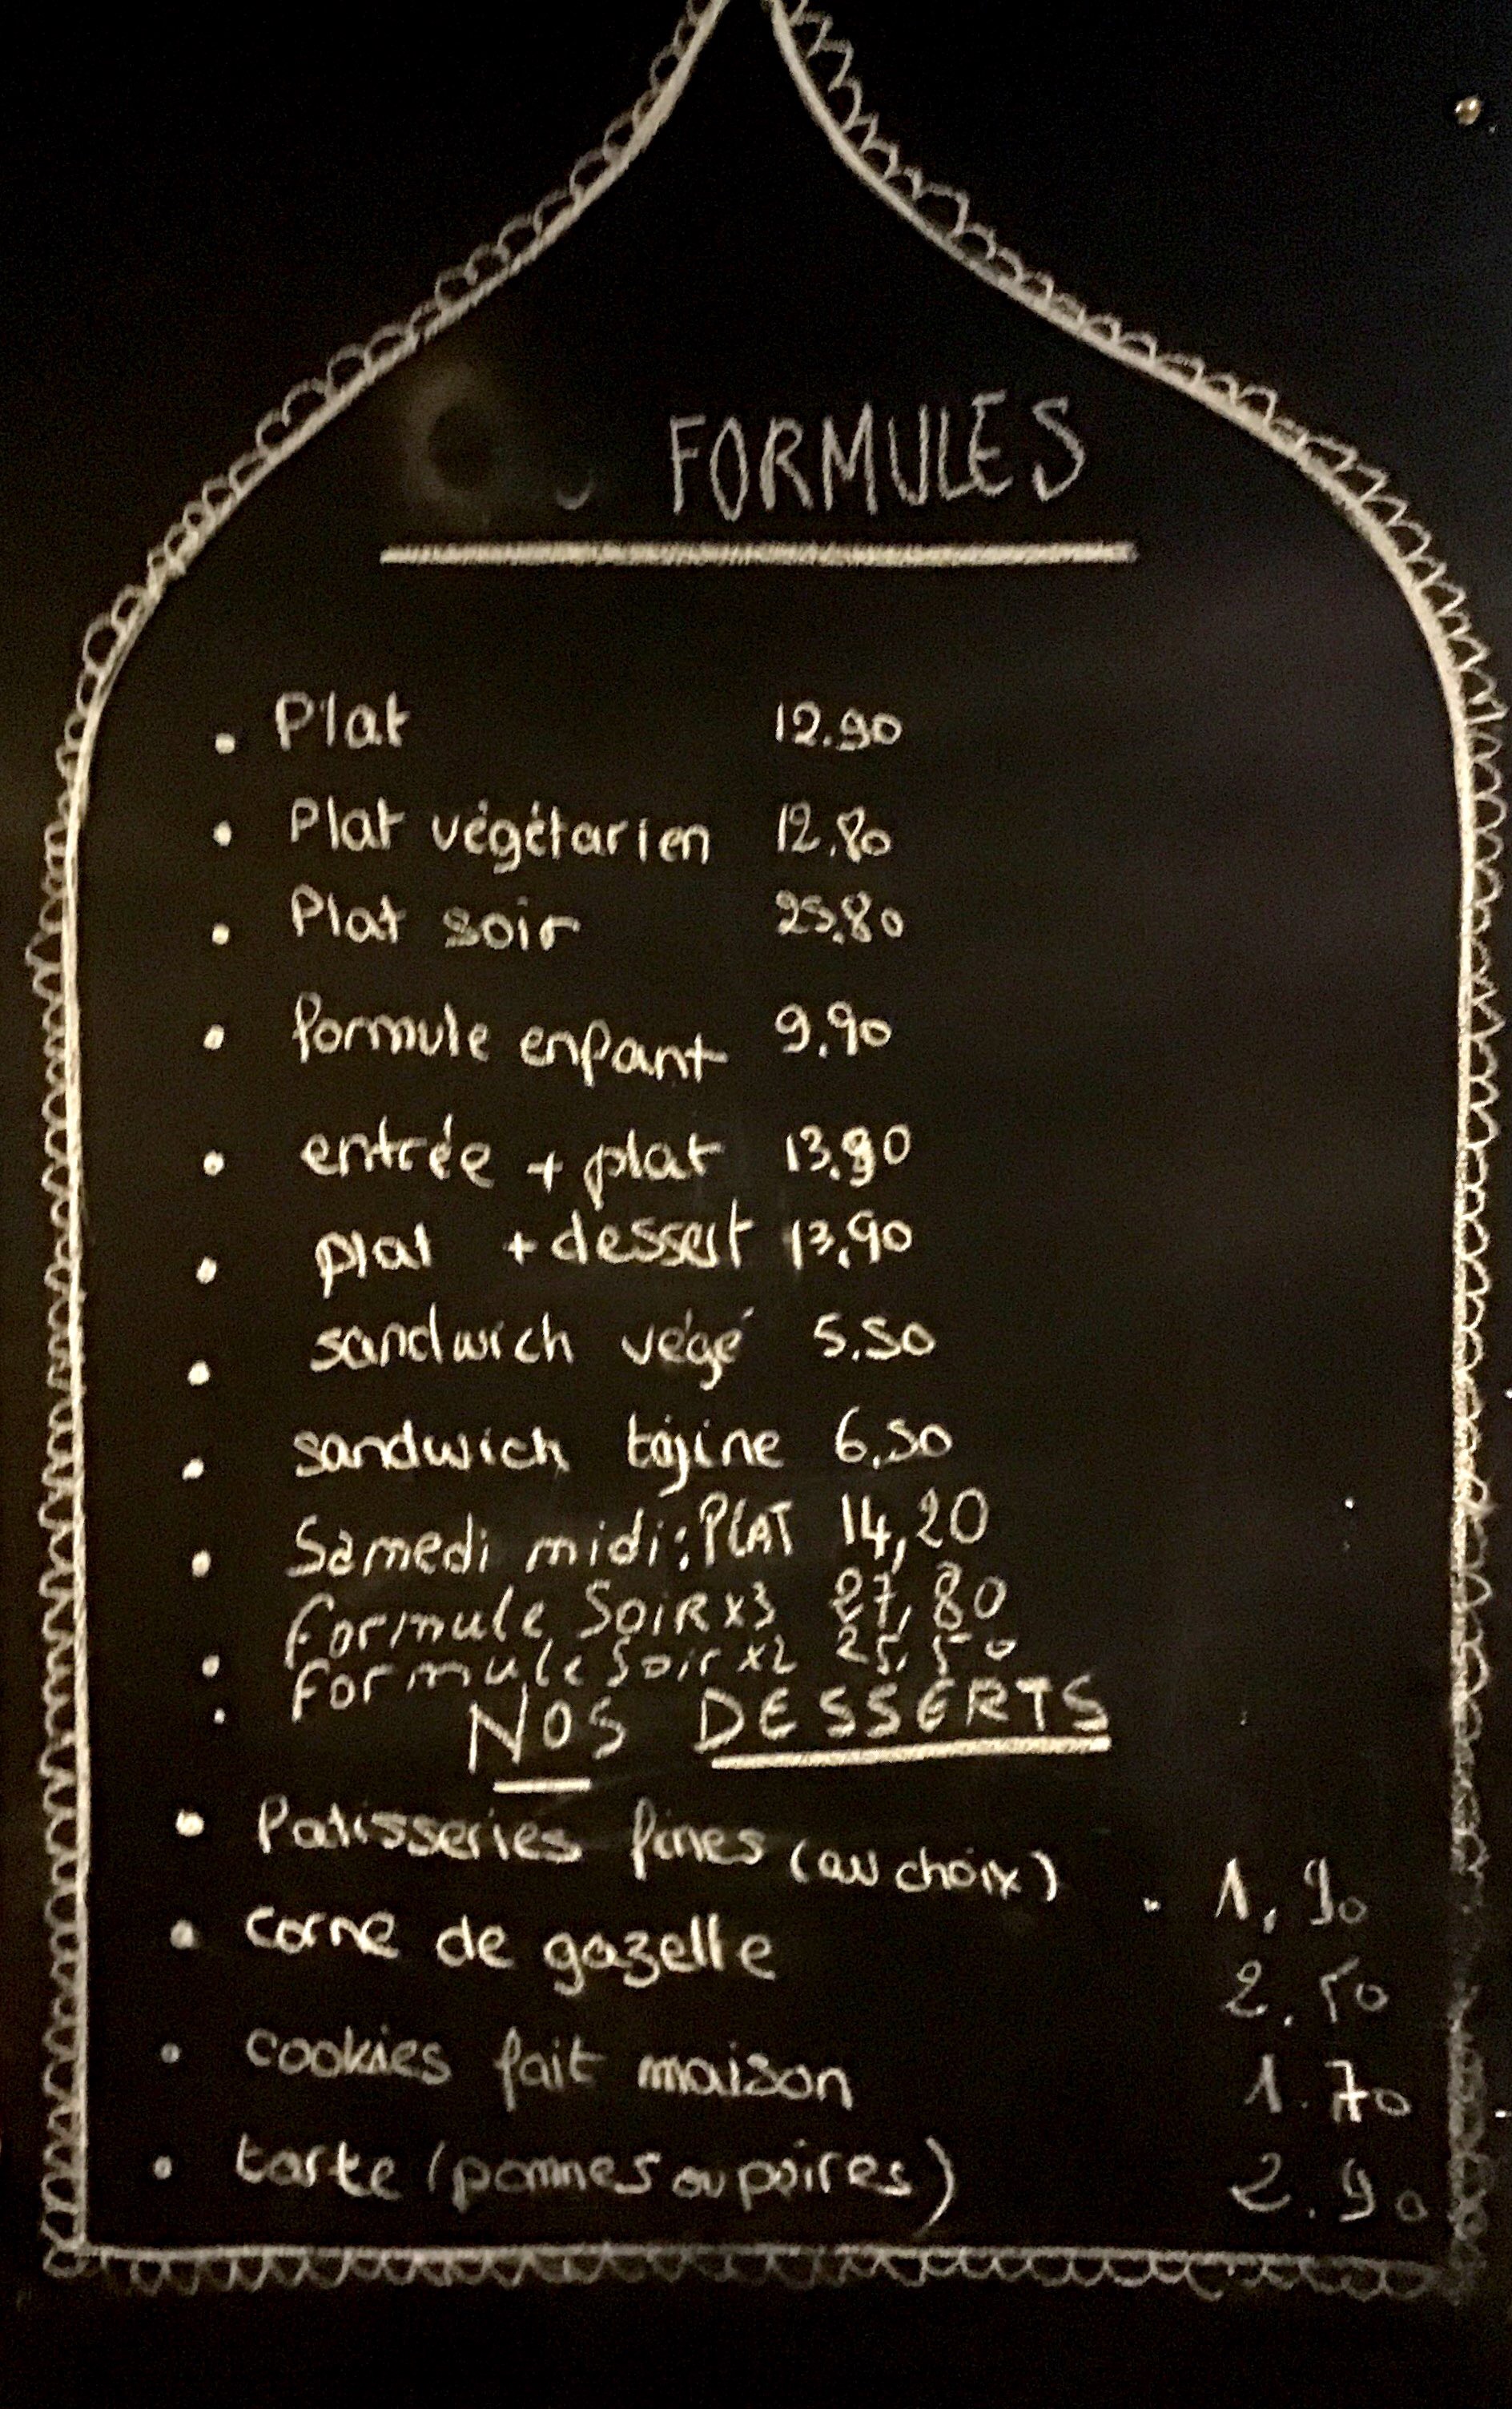 FORMULES
• Plat 12.90
• Plat végétarien 12.80
• Plat soir 25.80
• formule enfant 9.90
• entrée + plat 13.90
• plat + dessert 13.90
• sandwich végé 5.50
• sandwich tajine 6.50
• Samedi midi: PLAT 14,20
• Formule SOIR x3 27,80
• Formule Soir x2 25,50
NOS DESSERTS
• Patisseries fines (au choix) . 1,90
• corne de gazelle 2.50
• cookies fait maison 1.70
• tarte (pommes ou poires) 2.90